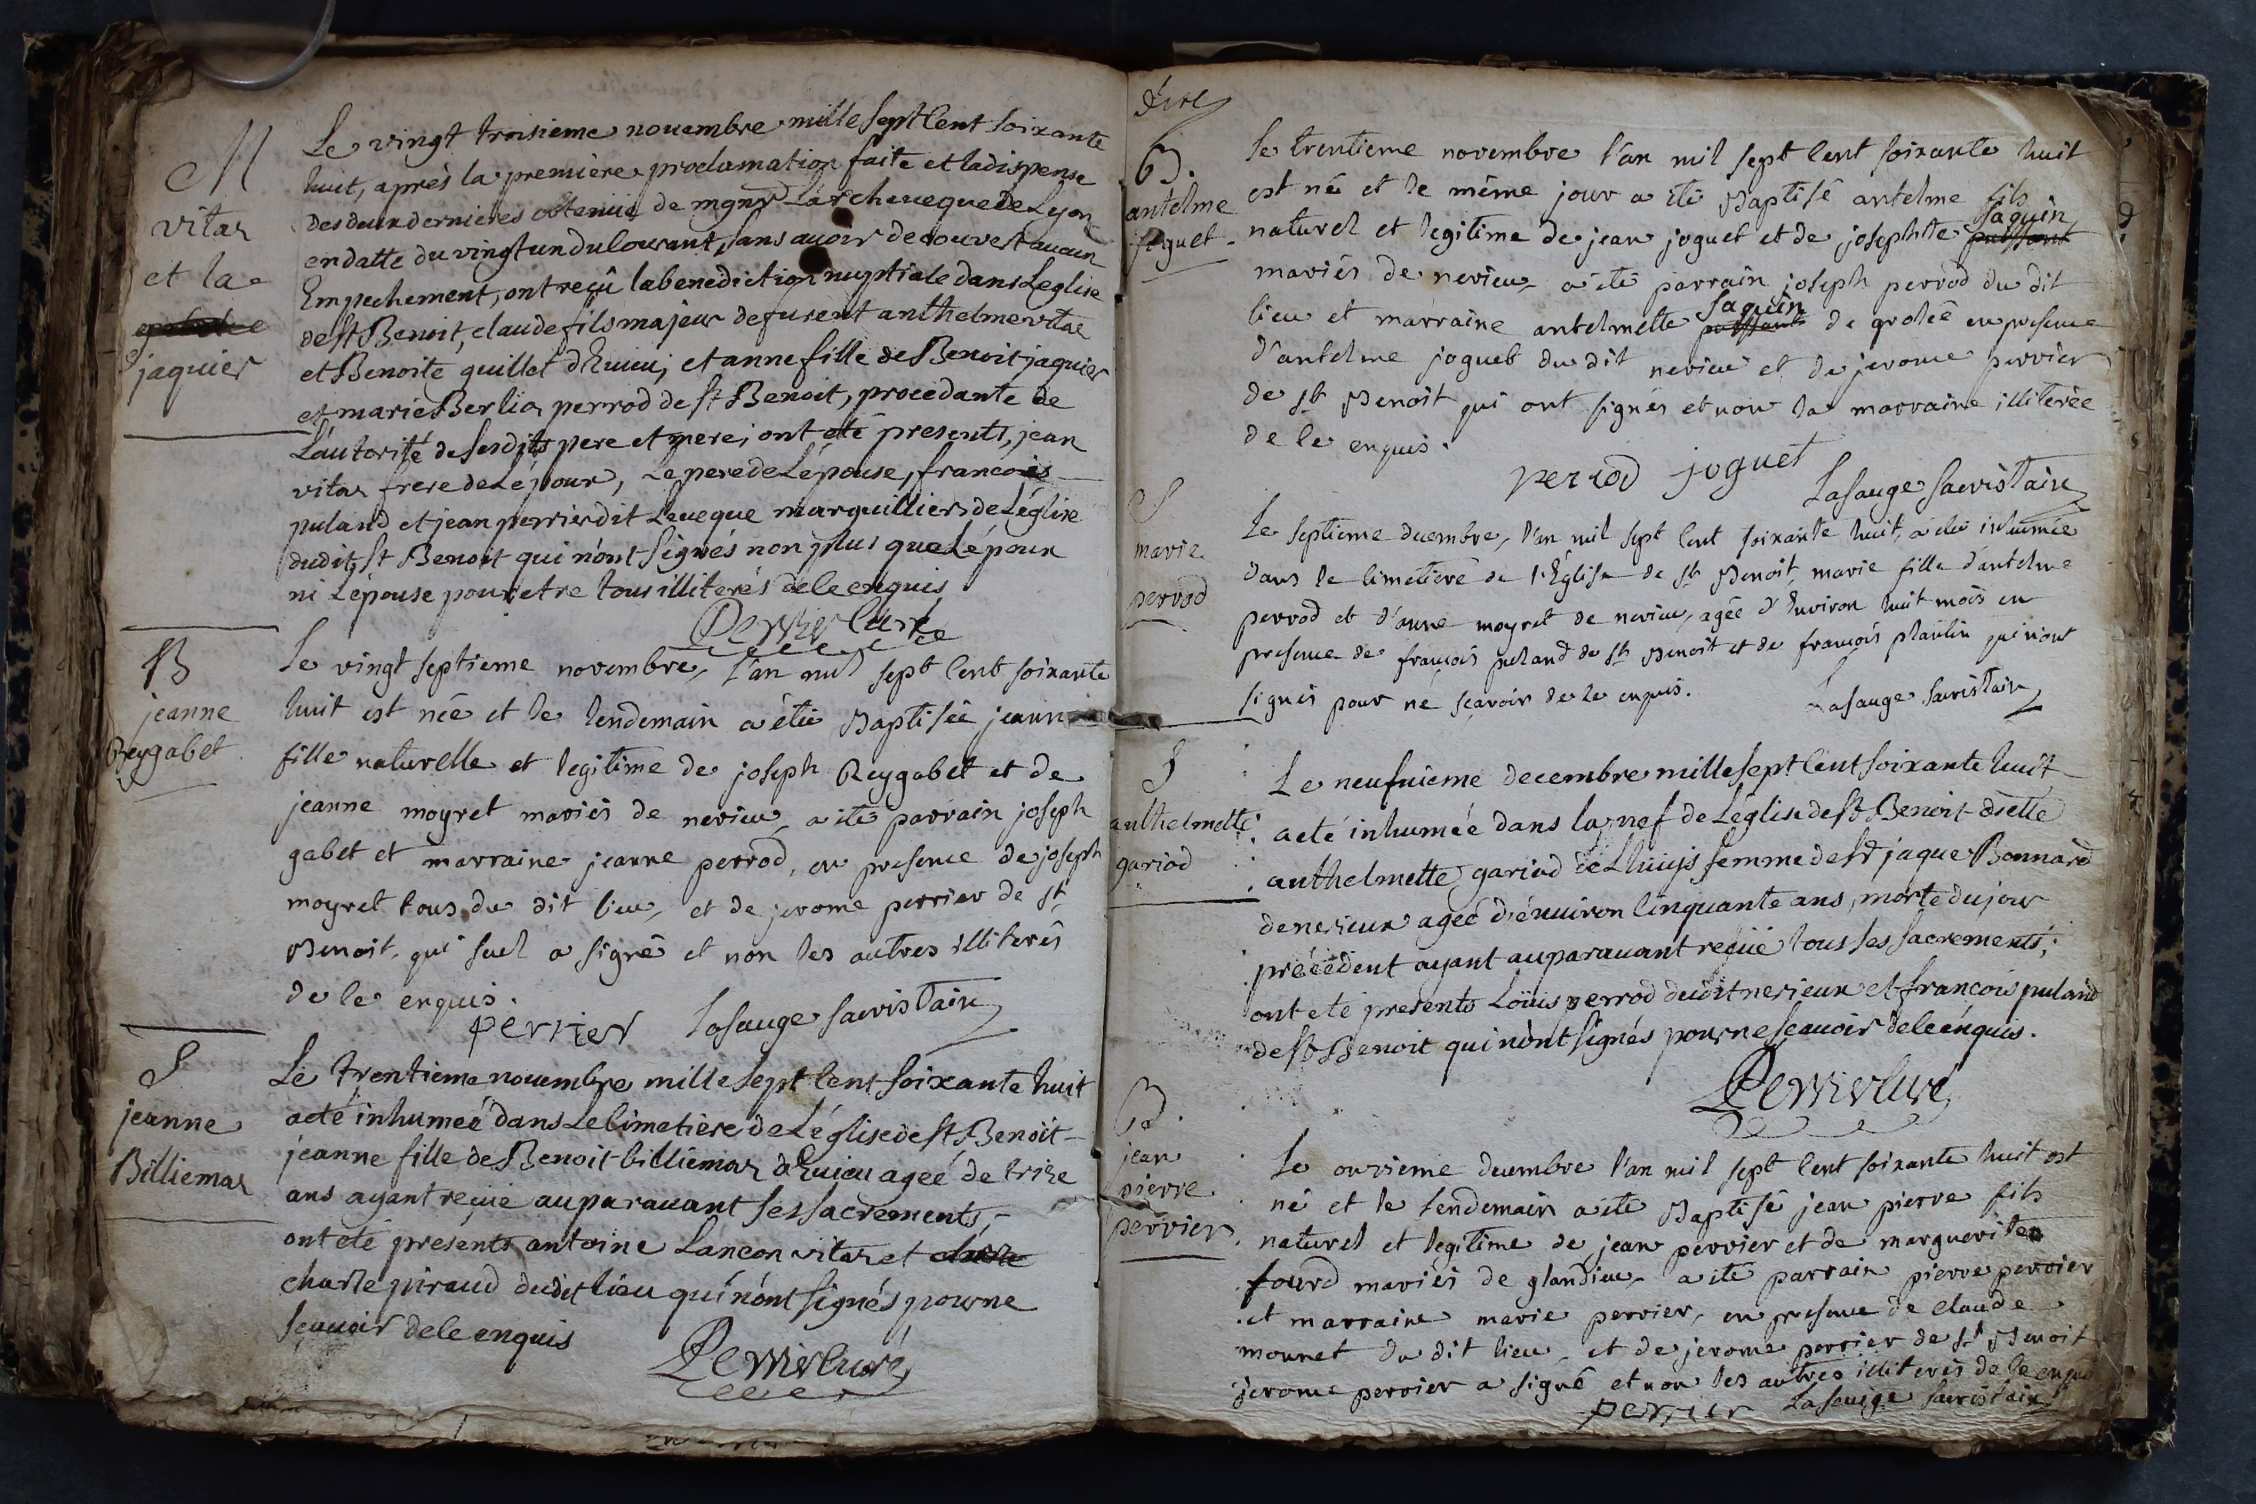 M
vitar
et la
jaquier
Le vingt troisieme novembre mille sept Cent soixante
huit, après la premiere proclamation faite et la dispense
des deux dernieres obtenüe de mgnr L'archeveque de Lyon
en datte du vingt un du Courant, sans avoir decouvert aucun
Empechement, ont reçû la benediction nuptiale dans L'eglise
de st Benoit, claude fils majeur de furent anthelme vitar
et Benoite guillet d'Evieu, et anne fille de Benoit jaquier
et marie Berlion perrod de st Benoit, procedante de
L'autorité de ses dits pere et mere; ont eté presents, jean
vitar frere de L'époux, Le pere de L'épouse, francois
puland et jean perrier dit Leveque marguilliers de L'église
dudit St Benoit qui n'ont signés non plus que L'époux
ni L'épouse pour etre tous illiterés de ce enquis
Perrier Curé
B
jeanne
Reygabet
Le vingt septieme novembre, l'an mil sept Cent soixante
huit est née et le lendemain a été Baptisée jeanne
fille naturelle et legitime de joseph Reygabet et de
jeanne moyret mariés de nerieu, a ité parrain joseph
gabet et marraine jeanne perrod, en presence de joseph
moyret tous du dit lieu, et de jerome perrier de st
Benoit, qui suel a signé et non les autres illiterés
de ce enquis.
perrier Lasauge sacristain
S
jeanne
Billiemaz
Le trentieme novembre mille sept Cent soixante huit
a eté inhumeé dans Le Cimetiere de L'église de st Benoit
jeanne fille de Benoit billiemaz d'Evieu ageé de trize
ans ayant reçüe auparavant ses sacrements,
ont eté presents antoine Lançon vitar et
charle piraud dudit lieu qui n'ont signés pour ne
sçavoir de ce enquis
Perrier Curé
B.
antelme
joguet
Le trentieme novembre l'an mil sept Cent soixante huit
est né et le même jour a été Baptisé antelme fils
naturel et legitime de jean joguet et de josephte
jaquin
mariés de nerieu, a ité parrain joseph perrod du dit
lieu et marraine antelmette jaquin de groleé en presence
d'antelme joguet du dit nerieu et de jerome perrier
de st Benoit qui ont signés et non la marraine illiterée
de ce enquis.
perrod joguet
Lasauge sacristain
S
marie
perrod
Le septieme decembre, l'an mil sept Cent soixante huit, a été inhumée
dans le Cimetiere de l'Église de st Benoit marie fille d'antelme
perrod et d'anne moyret de nerieu, agée d'Environ huit mois en
presence de francois puland de st Benoit et de francois plantin qui n'ont
signés pour ne sçavoir de ce enquis.
Lasauge sacristain
S
anthelmette
gariod
Le neufvieme decembre mille sept Cent soixante huit
a eté inhumeé dans la nef de L'église de st Benoit
anthelmette gariod de Lhuiys femme de Sr jaque Bonnard
de nerieux ageé d'énviron Cinquante ans, morte du jour
précédent ayant auparavant reçüe tous ses sacrements,
ont eté presents Loüis perrod dudit nerieux et francois puland
de st Benoit qui n'ont signés pour ne sçavoir de ce enquis.
Perrier Curé
B.
jean
pierre
perrier
Le onzieme decembre l'an mil sept Cent soixante huit est
né et le lendemain a ité Baptisé jean pierre fils
naturel et legitime de jean perrier et de marguerite
fourd mariés de glandieu, a ité parrain pierre perrier
et marraine marie perrier, en presence de Claude
mounet du dit lieu, et de jerome perrier de st Benoit
jerome perrier a signé et non les autres illiterés de ce enquis
perrier Lasauge sacristain